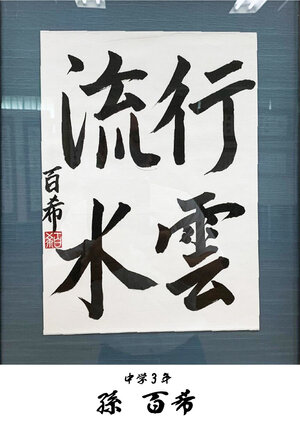 行雲
流水
百希
中学3年
孫 百希